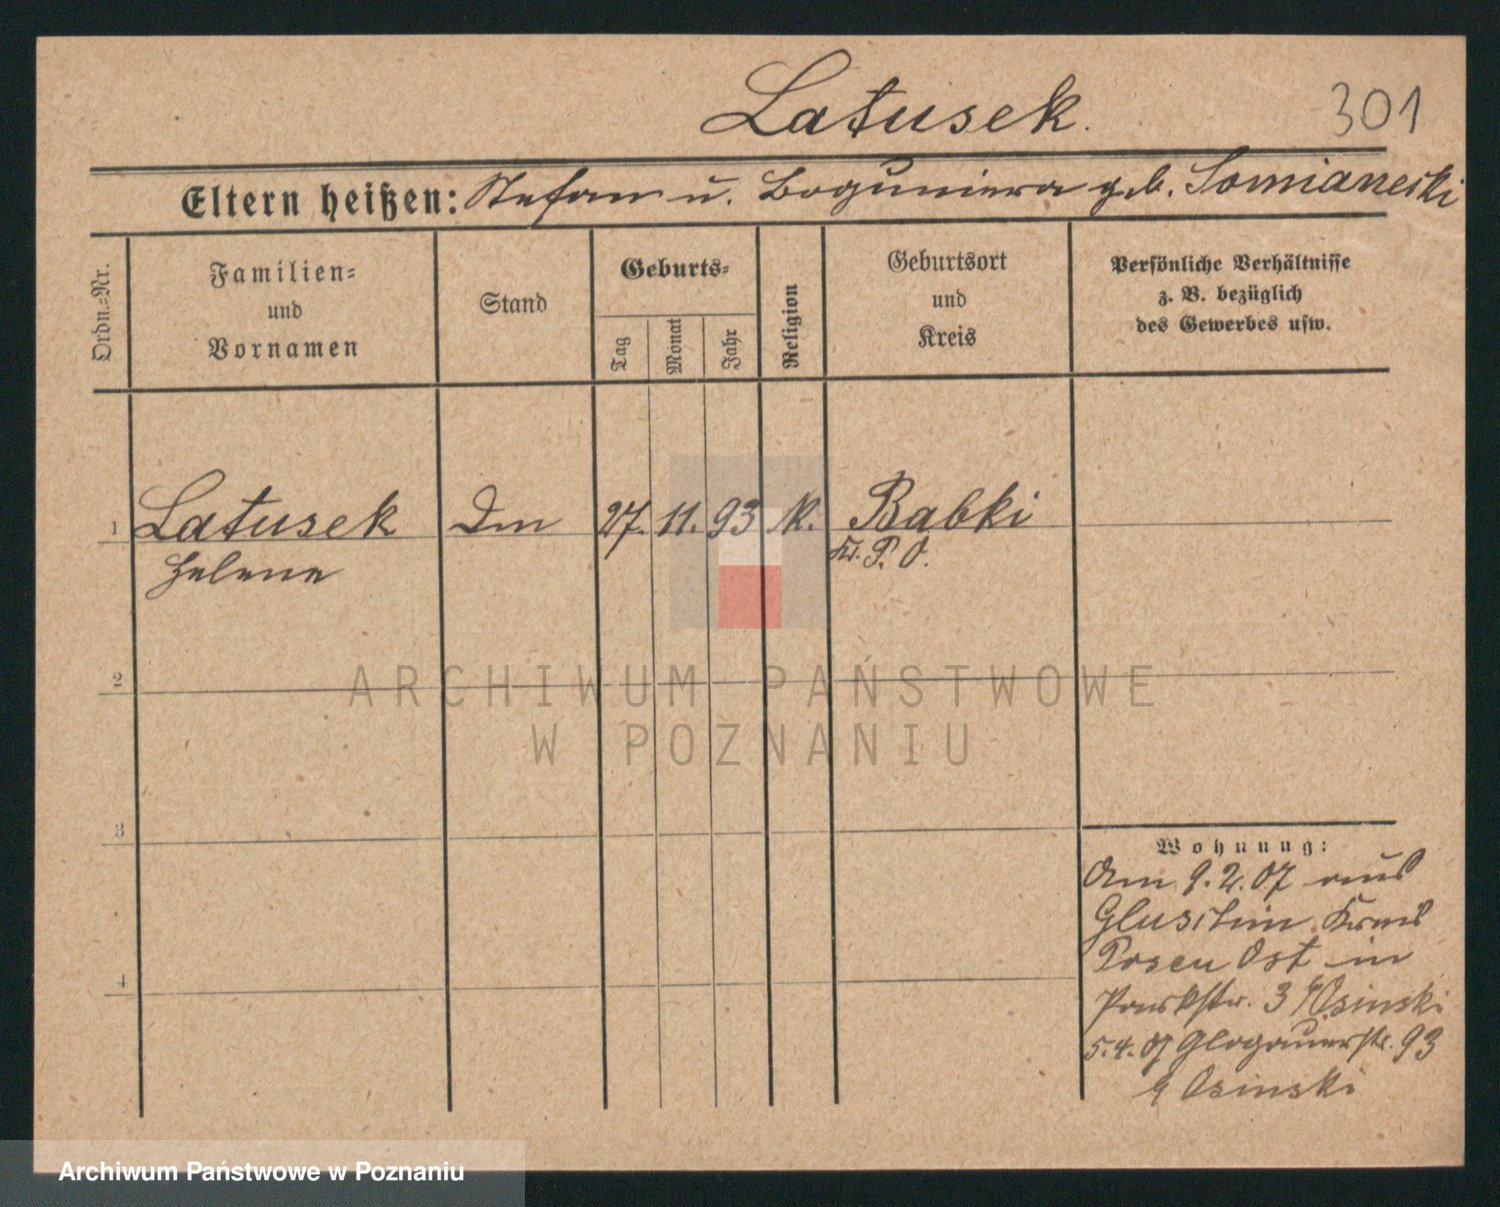 Latusek.
301
Eltern heißen: Stefan u. Boguniera geb. Somianeski
Ordn.=Nr.
Familien=
und
Vornamen
Stand
Geburts=
Tag
Monat
Jahr
Religion
Geburtsort
und
Kreis
Persönliche Verhältnisse
z. B. bezüglich
des Gewerbes usw.
1 Latusek 27. 11. 93 K. Babki
Helene Kr. P. O.
2
ARCHIWUM PAŃSTWOWE
W POZNANIU
3
4
Wohnung:
Am 9.2.07 aus
Kreis
Posen Ost in
Parkstr. 3 Osinski
5.4.07 Glogauerstr. 93
Osinski
Archiwum Państwowe w Poznaniu